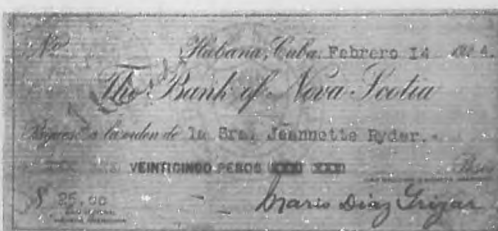 No.
Habana, Cuba, Febrero 14
The Bank of Nova Scotia
Páguese a la orden de la Sra. Jeannette Ryder.-
VEINTICINCO PESOS XXX XXX Pesos
$ 25.00
Mario Díaz